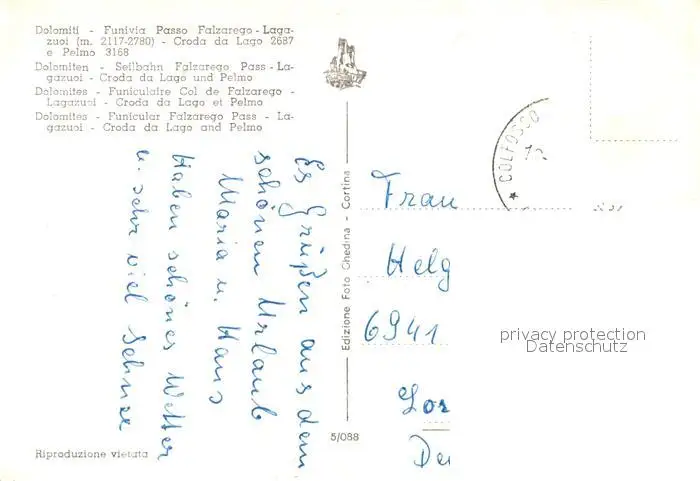 Dolomiti - Funivia Passo Falzarego - Laga-
zuoi (m. 2117-2780) - Croda da Lago 2687
e Pelmo 3168
Dolomiten - Seilbahn Falzarego Pass - La-
gazuoi - Croda da Lago und Pelmo
Dolomites - Funiculaire Col de Falzarego -
Lagazuoi - Croda da Lago et Pelmo
Dolomites - Funicular Falzarego Pass - La-
gazuoi - Croda da Lago and Pelmo
Es Grüßen aus dem
schönen Urlaub
Maria u. Hans
Haben schönes Wetter
u. sehr viel Schnee
Edizione Foto Ghedina - Cortina
COLFOSCO
Frau
Helg
6941
Lor
De
privacy protection
Datenschutz
5/088
Riproduzione vietata